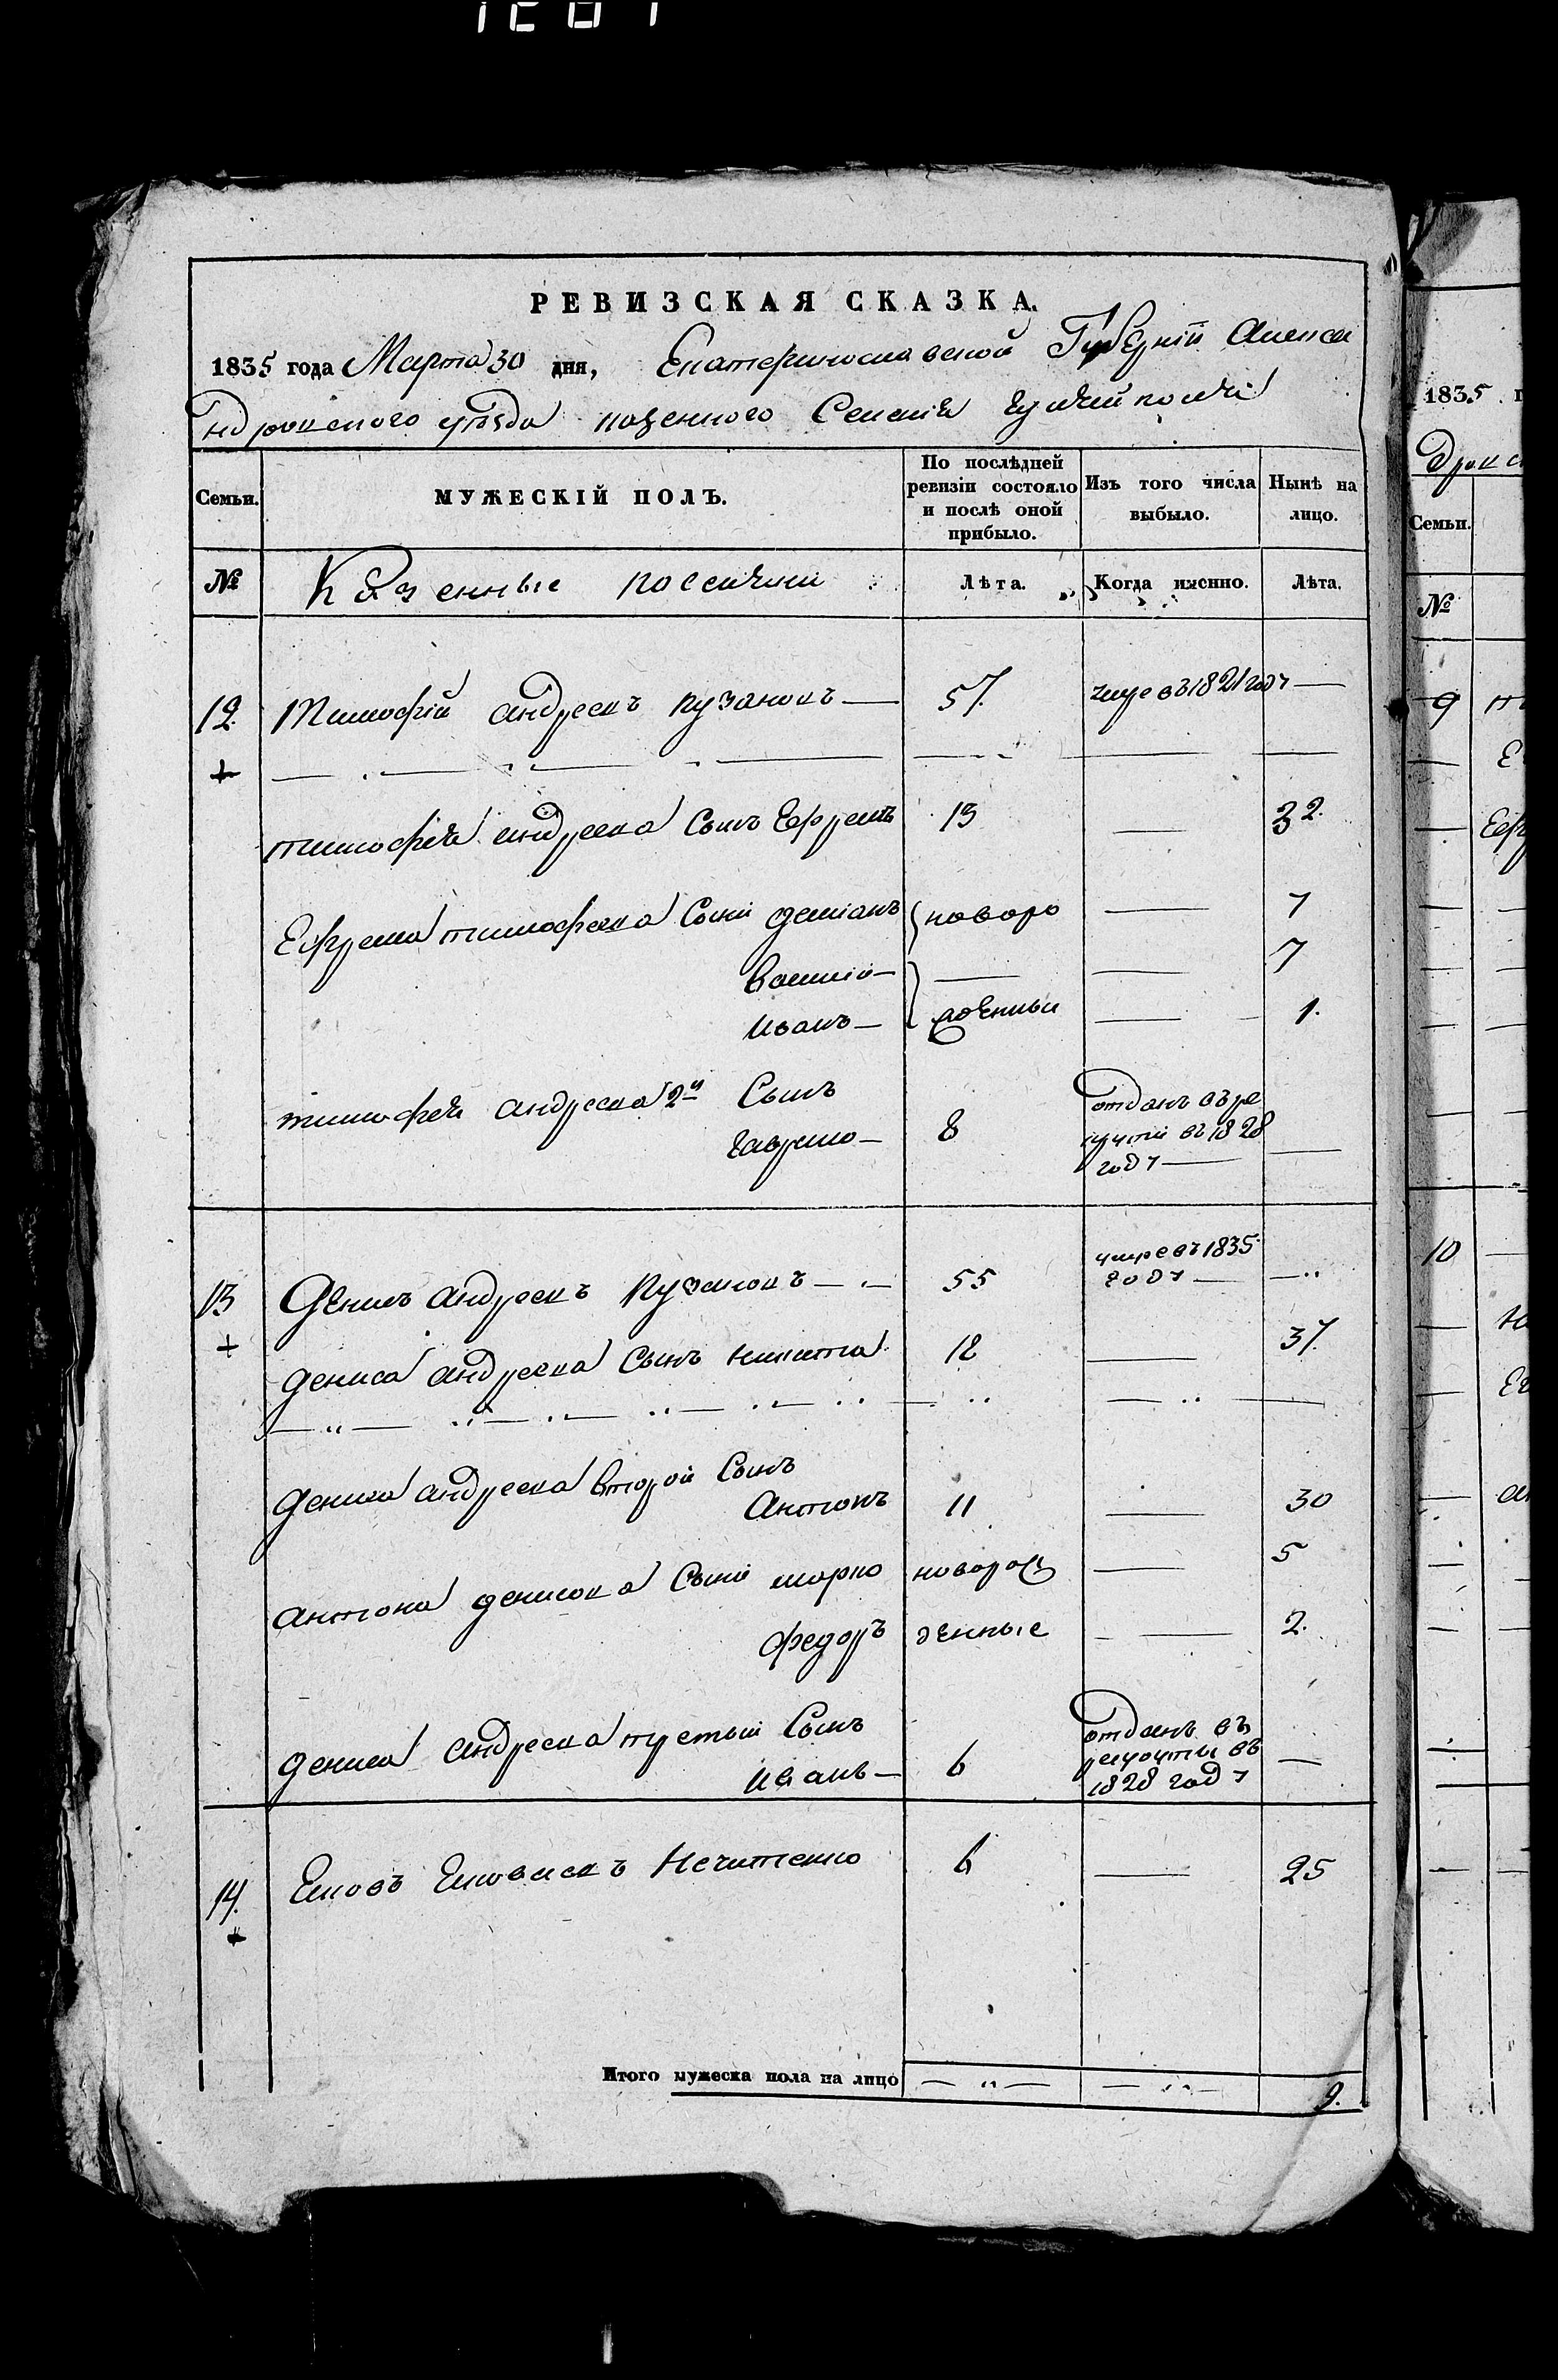 РЕВИЗСКАЯ СКАЗКА.
1835 года Марта 30 дня, Екатеринославской Губерніи Алекса
ндровского уѣзда казенного Селенія
Семьи. МУЖЕСКІЙ ПОЛЪ. По послѣдней ревизіи состояло и послѣ оной прибыло. Изъ того числа выбыло. Нынѣ на лицо.
№ Казенные поселяни Лѣта. Когда имянно. Лѣта.
12. Тимофій андреевъ кузановъ — 57. умре въ 1821 году —
тимофея андреева Сынъ Ефремъ 13 — 32.
Ефрема тимофеева Сыни демianъ новоро — 7
Василіо — — — 7
Иванъ — жденныи — 1.
тимофея андреева 2й Сынъ отданъ въ ре
Гаврило — 8 круты въ 1828
году — —
умре въ 1835
13 Денисъ андреевъ Кузановъ — 55 году —
дениса андреева Сынъ никита 18 — 37.
дениса андреева второй Сынъ
Антонъ 11 — 30
антона денисова Сыни марко новорож — 5
федоръ денные — 2.
дениса андреева третьи Сынъ отданъ въ
Иванъ — 6 рекруты въ —
1828 году
14. Яковъ Яковлевъ Нечитайло 6 — 25
Итого мужеска пола на лицо — „ — — „ — 9.
1835
др
Семьи.
№
9
10